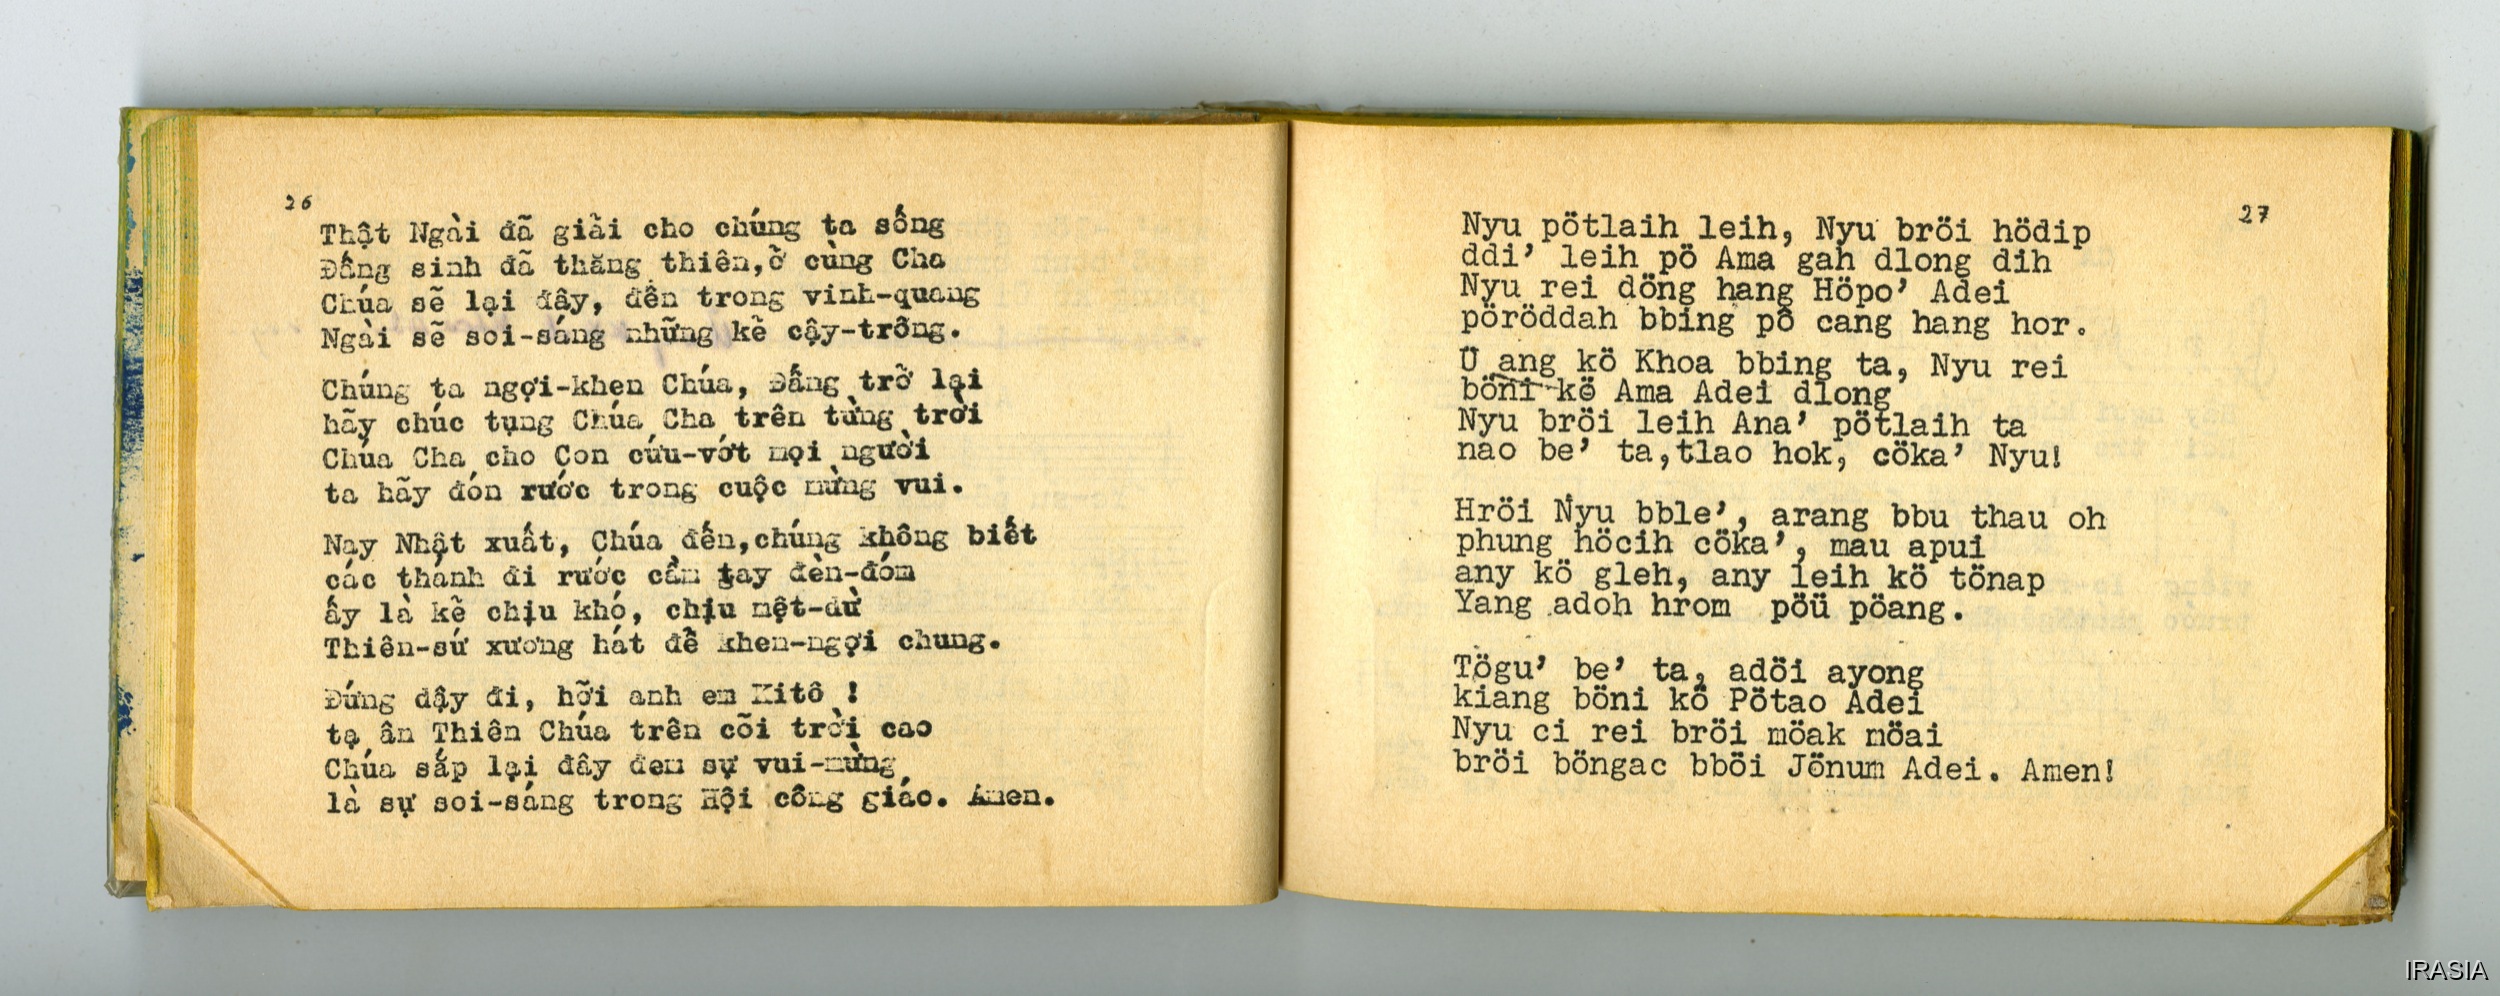 26
Thật Ngài đã giải cho chúng ta sống
Đấng sinh đã thăng thiên,ở cùng Cha
Chúa sẽ lại đây, đến trong vinh-quang
Ngài sẽ soi-sáng những kẻ cậy-trông.
Chúng ta ngợi-khen Chúa, Đấng trở lại
hãy chúc tụng Chúa Cha trên từng trời
Chúa Cha cho Con cứu-vớt mọi người
ta hãy đón rước trong cuộc mừng vui.
Nay Nhật xuất, Chúa đến,chúng không biết
các thánh đi rước cầm tay đèn-đóm
ấy là kẻ chịu khó, chịu mệt-dừ
Thiên-sứ xương hát để khen-ngợi chung.
Đứng dậy đi, hỡi anh em Kitô !
tạ ân Thiên Chúa trên cõi trời cao
Chúa sắp lại đây đem sự vui-mừng
là sự soi-sáng trong Hội công giáo. Amen.
27
Nyu pötlaih leih, Nyu bröi hödip
ddi' leih pö Ama gah dlong dih
Nyu rei döng hang Höpo' Adei
pöröddah bbing pô cang hang hor.
Ü ang kö Khoa bbing ta, Nyu rei
böni kö Ama Adei dlong
Nyu bröi leih Ana' pötlaih ta
nao be' ta,tlao hok, cöka' Nyu!
Hröi Nyu bble', arang bbu thau oh
phung höcih cöka', mau apui
any kö gleh, any leih kö tönap
Yang adoh hrom pöü pöang.
Tögu' be' ta, adöi ayong
kiang böni kö Pötao Adei
Nyu ci rei bröi möak möai
bröi böngac bböi Jönum Adei. Amen!
IRASIA